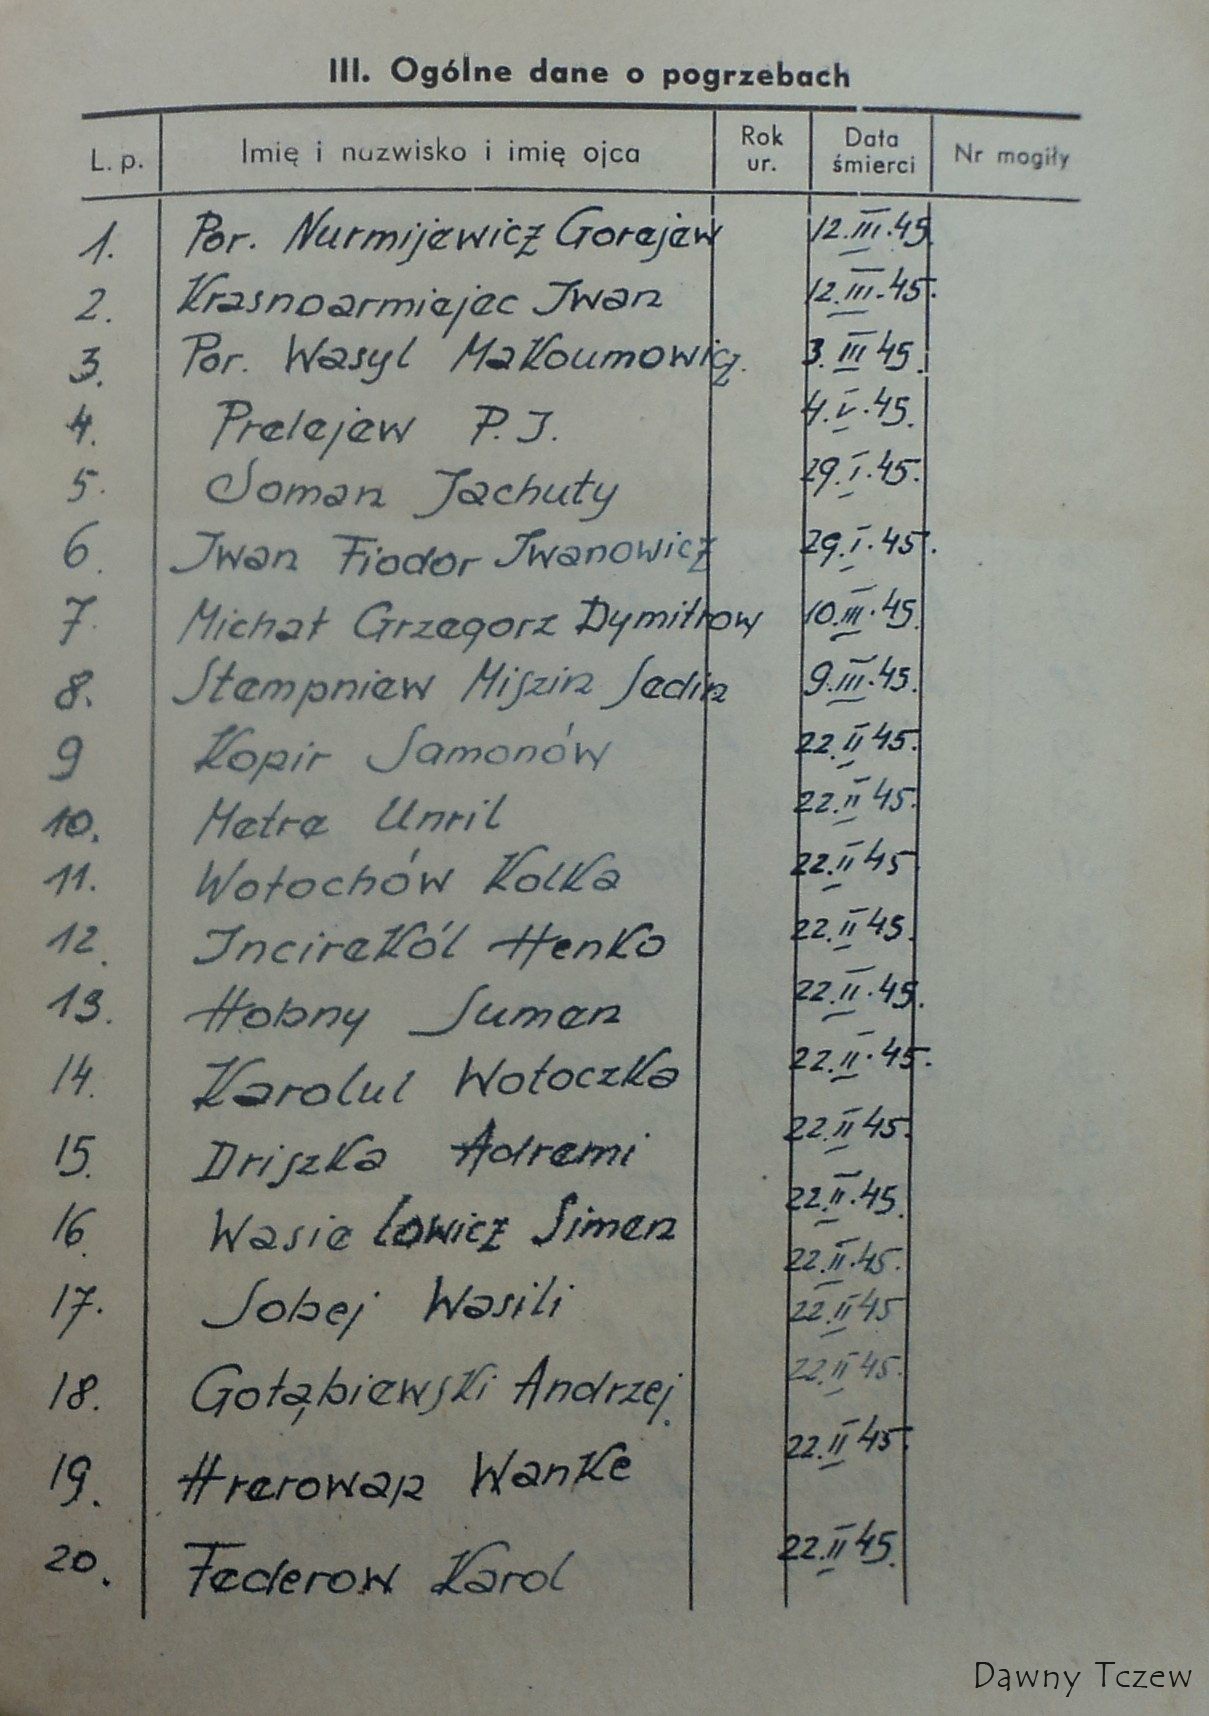 III. Ogólne dane o pogrzebach
L. p. Imię i nazwisko i imię ojca Rok ur. Data śmierci Nr mogiły
1. Por. Nurmijewicz Gorejew 12.III.45.
2. Krasnoarmiejec Iwan 12.III.45.
3. Por. Wasyl Makoumowicz. 3.III 45.
4. Prelejew P. I. 4.V.45.
5. Soman Jachuty 29.I.45.
6. Iwan Fiodor Iwanowicz 29.I.45.
7. Michał Grzegorz Dymitrow 10.III.45.
8. Stempniew Miszin Sedin 9.III.45.
9 Kopir Samonów 22.II 45.
10. Metre Unril 22.II 45.
11. Wołochów Kolka 22.II 45
12. Incirekól Henko 22.II 45.
13. Hobny Sumen 22.II.45.
14. Karolul Wołoczka 22.II.45.
15. Driszka Adremi 22.II 45.
16. Wasielowicz Simen 22.II.45.
22.II.45.
17. Sobej Wasili 22.II 45
18. Gołąbiewski Andrzej 22.II 45.
19. Hrerowan Wanke 22.II 45.
20. Federow Karol 22.II 45.
Dawny Tczew